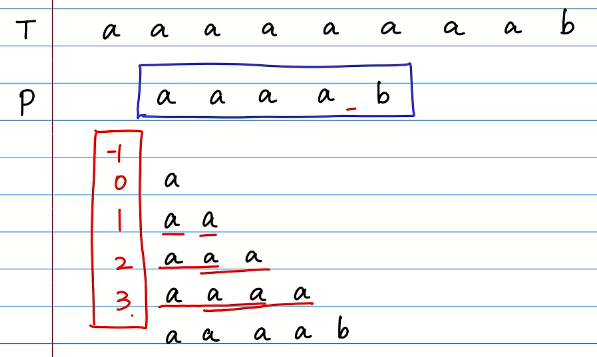 T a a a a a a a a b
P a a a a b
-1
0 a
1 a a
2 a a a
3 a a a a
a a a a b